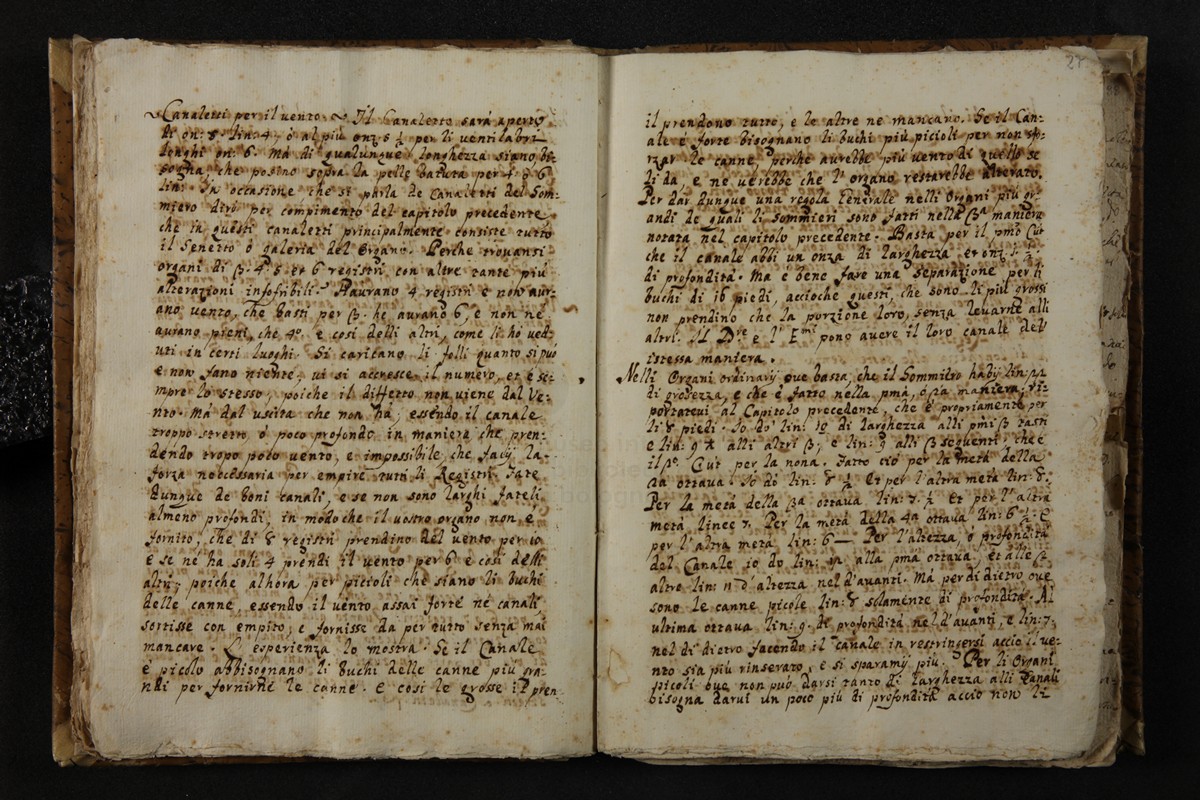 Canaletti per il vento. Il Canaletto sarà aperto
di on: 8. lin: 4. ò al più onz: 5 ½ per li ventilabri
longhi on: 6. Mà di qualunque longhezza siano bi-
sogna, che posino sopra la pelle batuta per 4. ò 6
lin: In occasione che si parla de Canaletti del Som-
miero dirò per compimento del capitolo precedente,
che in questi canaletti principalmente consiste tutto
il Senetto ò galeria del Organo. Perche trovansi
organi di 3. 4. 5. et 6 registri con altre tante più
alterazioni insofribili. Haurano 4 registri e non aur-
ano vento, che basti per 3. he aurano 6, e non ne
aurano pieni, che 4°. e così delli altri, come li hò ved-
uti in certi luoghi. Si caricano li folli quanto si può
e non fano niente, vi si accresce il numero, et è se-
mpre lo stesso, poiche il diffetto non viene dal Ve-
nto. Mà dal uscita che non ha; essendo il canale
troppo stretto, ò poco profondo in maniera che pren-
dendo tropo poco vento, è impossibile che facij la
forza neccessaria per empire tutti li Registri. Fate
dunque de boni canali, e se non sono larghi fateli
almeno profondi, in modo che il vostro organo non è
fornito, che di 8 registri prendino del vento per 10
e se ne ha soli 4 prendi il vento per 6 e così delli
altri; poiche alhora per piccioli che siano li buchi
delle canne, essendo il vento assai forte ne canali
sortisse con empito, e fornisse da per tutto senza mai
mancare. L'esperienza lo mostra. Se il Canale
è picolo abbisognano li buchi delle canne più gra-
ndi per fornirne le canne. e così le grosse il pren-
27
il prendono tutto, e le altre ne mancano. Se il Can-
ale è forte bisognano li buchi più picioli per non sfo-
rzar le canne, perche aurebbe più vento di quello se
li dà, e ne verebbe che l'organo restarebbe alterato.
Per dar dunque una regola Generale nelli Organi più gr-
andi de quali li Sommieri sono fatti nella 3a maniera
notata nel capitolo precedente. Basta per il pmo Cut
che il canale abbi un onza di larghezza et onz: 1. ½
di profondità. Ma è bene fare una separazione per li
buchi di 16 piedi, accioche questi, che sono li più grossi
non prendino che la porzione loro, senza levarne alli
altri. Il Dre e l'Emi pono avere il loro canale del
istessa maniera.
Nelli Organi ordinarij oue basta, che il Sommiero habij lin:
di grossezza, e che è fatto nella pma, ò 2a maniera, ri-
portatevi al Capitolo precedente, che è propriamente per
li 8 piedi. Io do lin: 10 di larghezza alli pmi 3 tasti
e lin: 9 ½ alli altri 3, e lin: 9 alli 3 seguenti, che è
il po. Cut per la nona. Fatto ciò per la metà della
2a ottava: Io dò lin: 8 ½ Et per l'altra metà lin: 8.
Per la metà della 3a ottava lin: 7. ½ Et per l'altra
metà linee 7. Per la metà della 4a ottava lin: 6 ½. E
per l'altra metà lin: 6— Per l'altezza, ò profondità
del Canale io do lin: 12 alla pma ottava. et alle 3
altre lin: 11 d'altezza nel d'avanti. Mà per di dietro oue
sono le canne picole lin: 8 solamente di profondità. Al
ultima ottava lin: 9. di profondità nel d'avanti, e lin: 7.
nel di dietro facendo il canale in restringersi acciò il ve-
nto sia più rinserato, e si sparamij più. Per li Organi
picoli oue non può darsi tanto di larghezza alli Canali
bisogna darui un poco più di profondità acciò non li